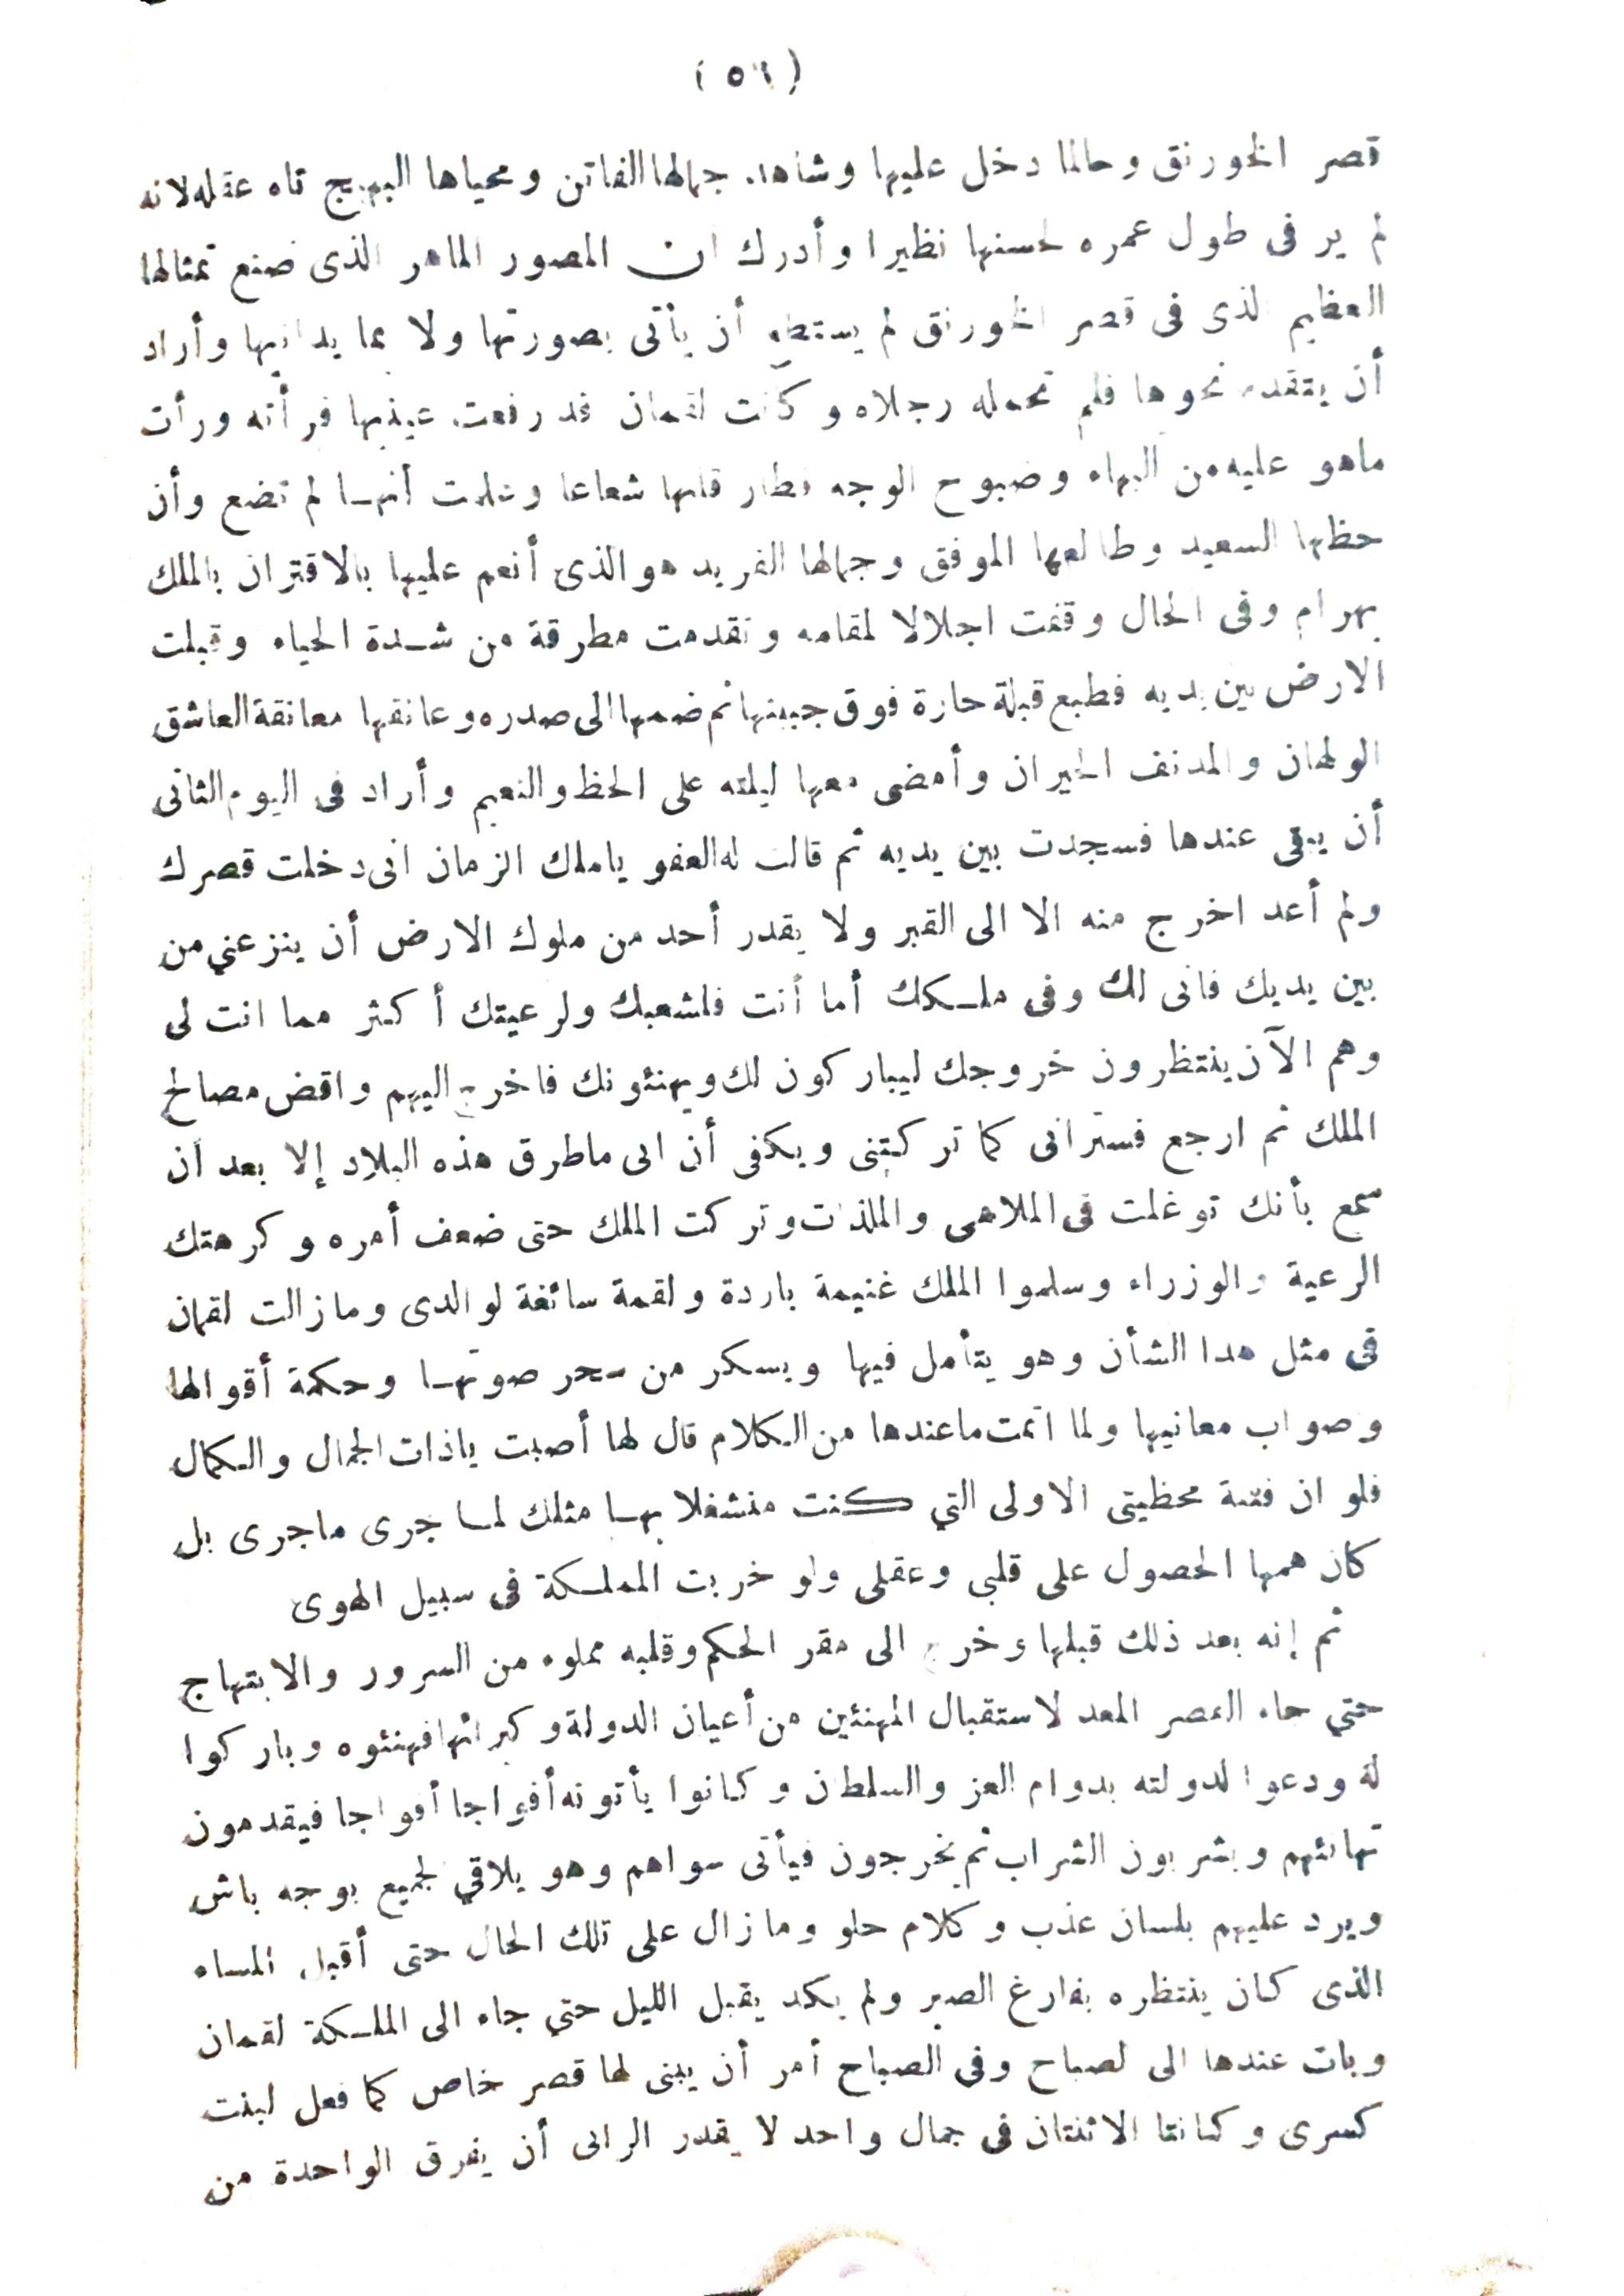 (٥٦)
قصر الخورنق وحالما دخل عليها وشاهد جمالها الفاتن ومحياها البهيج تاه عقله لانه
لم ير فى طول عمره لحسنها نظيرا وأدرك ان المصور الماهر الذى صنع تمثالها
العظيم الذى فى قصر الخورنق لم يستطع أن يأتى بصورتها ولا بما يدانيها وأراد
أن يتقدم نحوها فلم تحمله رجلاه وكانت لقمان قد رفعت عينيها فرأته ورأت
ماهو عليه من البهاء وصبوح الوجه فطار قلبها شعاعا وعلمت أنهـا لم تضع وأن
حظها السعيد وطالعها الموفق وجمالها الفريد هو الذى أنعم عليها بالاقتران بالملك
بهرام وفى الحال وقفت اجلالا لمقامه وتقدمت مطرقة من شـدة الحياء وقبلت
الارض بين يديه فطبع قبلة حارة فوق جبينها ثم ضمها الى صدره وعانقها معانقة العاشق
الولهان والمدنف الحيران وأمضى معها ليلته على الحظ والنعيم وأراد فى اليوم الثانى
أن يبقى عندها فسجدت بين يديه ثم قالت له العفو ياملك الزمان انى دخلت قصرك
ولم أعد اخرج منه الا الى القبر ولا يقدر أحد من ملوك الارض أن ينزعني من
بين يديك فانى لك وفى ملـكك أما أنت فلشعبك ولرعيتك أكثر مما انت لى
وهم الآن ينتظرون خروجك ليباركون لك ويهنئونك فاخرج اليهم واقض مصالح
الملك ثم ارجع فسترانى كما تركتنى ويكفى أن ابى ماطرق هذه البلاد إلا بعد أن
سمع بأنك توغلت فى الملاهى والملذات وتركت الملك حتى ضعف أمره وكرهتك
الرعية والوزراء وسلموا الملك غنيمة باردة ولقمة سائغة لوالدى ومازالت لقمان
فى مثل هدا الشأن وهو يتأمل فيها ويسكر من سحر صوتهـا وحكمة أقوالها
وصواب معانيها ولما اتمت ماعندها من الـكلام قال لها أصبت ياذات الجمال والـكمال
فلو ان فتنة محظيتى الاولى التي كنت منشغلا بهـا مثلك لمـا جرى ماجرى بل
كان همها الحصول على قلبى وعقلى ولو خربت المملـكة فى سبيل الهوى
ثم إنه بعد ذلك قبلها وخرج الى مقر الحكم وقلبه مملوء من السرور والابتهاج
حتي جاء القصر المعد لاستقبال المهنئين من أعيان الدولة وكبرائها فهنئوه وباركوا
له ودعوا لدولته بدوام العز والسلطان وكانوا يأتونه أفواجا أفواجا فيقدمون
تهانئهم ويشربون الشراب ثم يخرجون فيأتى سواهم وهو يلاقي لجميع بوجه باش
ويرد عليهم بلسان عذب وكلام حلو ومازال على تلك الحال حتى أقبل المساء
الذى كان ينتظره بفارغ الصبر ولم يكد يقبل الليل حتي جاء الى الملـكة لقمان
وبات عندها الى لصباح وفى الصباح أمر أن يبنى لها قصر خاص كما فعل لبنت
كسرى وكانتا الاثنتان فى جمال واحد لا يقدر الرائى أن يفرق الواحدة من